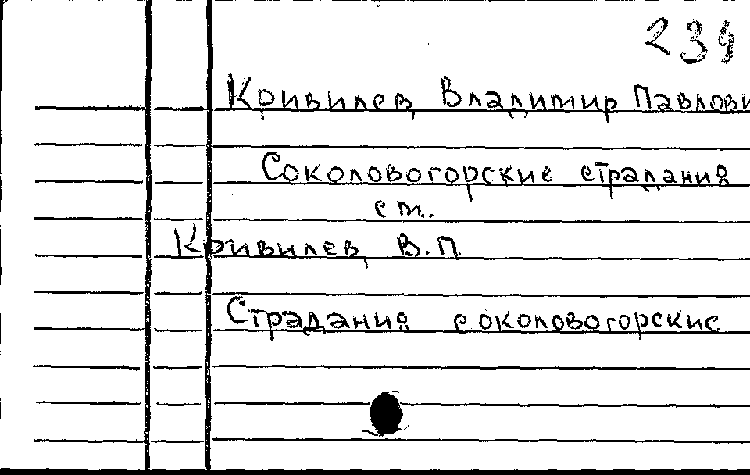 239
Кривилев, Владимир Павлови
Соколовогорские страдания
ст.
Кривилев, В.П.
Страдания соколовогорские